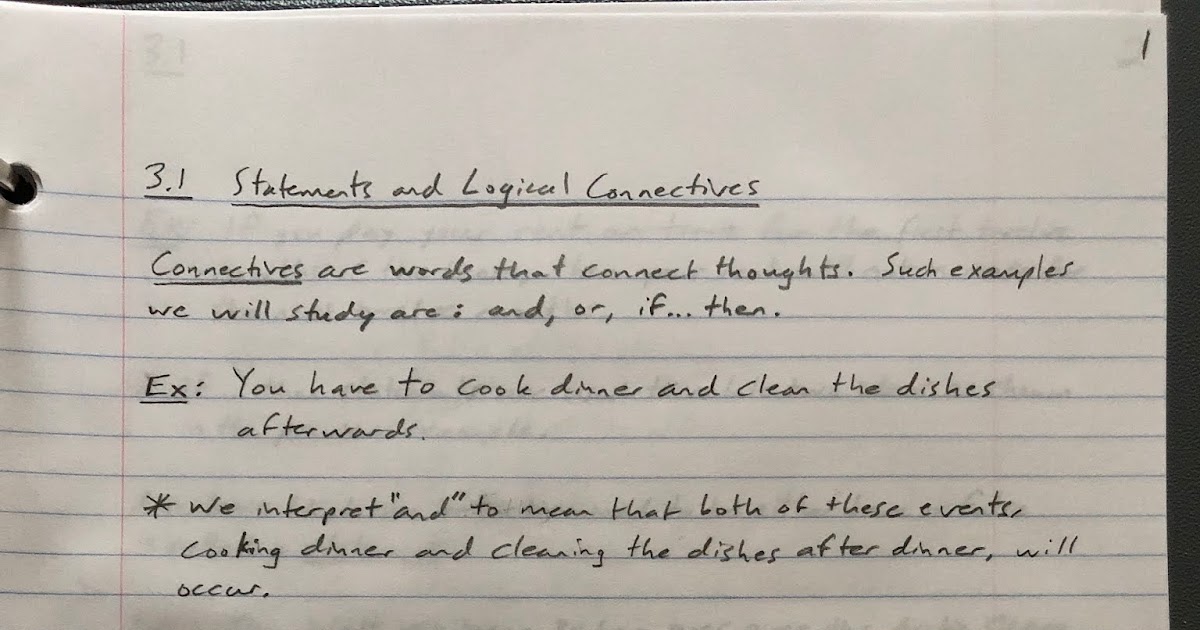 1
3.1 Statements and Logical Connectives
Connectives are words that connect thoughts. Such examples
we will study are: and, or, if... then.
Ex: You have to cook dinner and clean the dishes
afterwards.
* We interpret "and" to mean that both of these events,
cooking dinner and cleaning the dishes after dinner, will
occur.